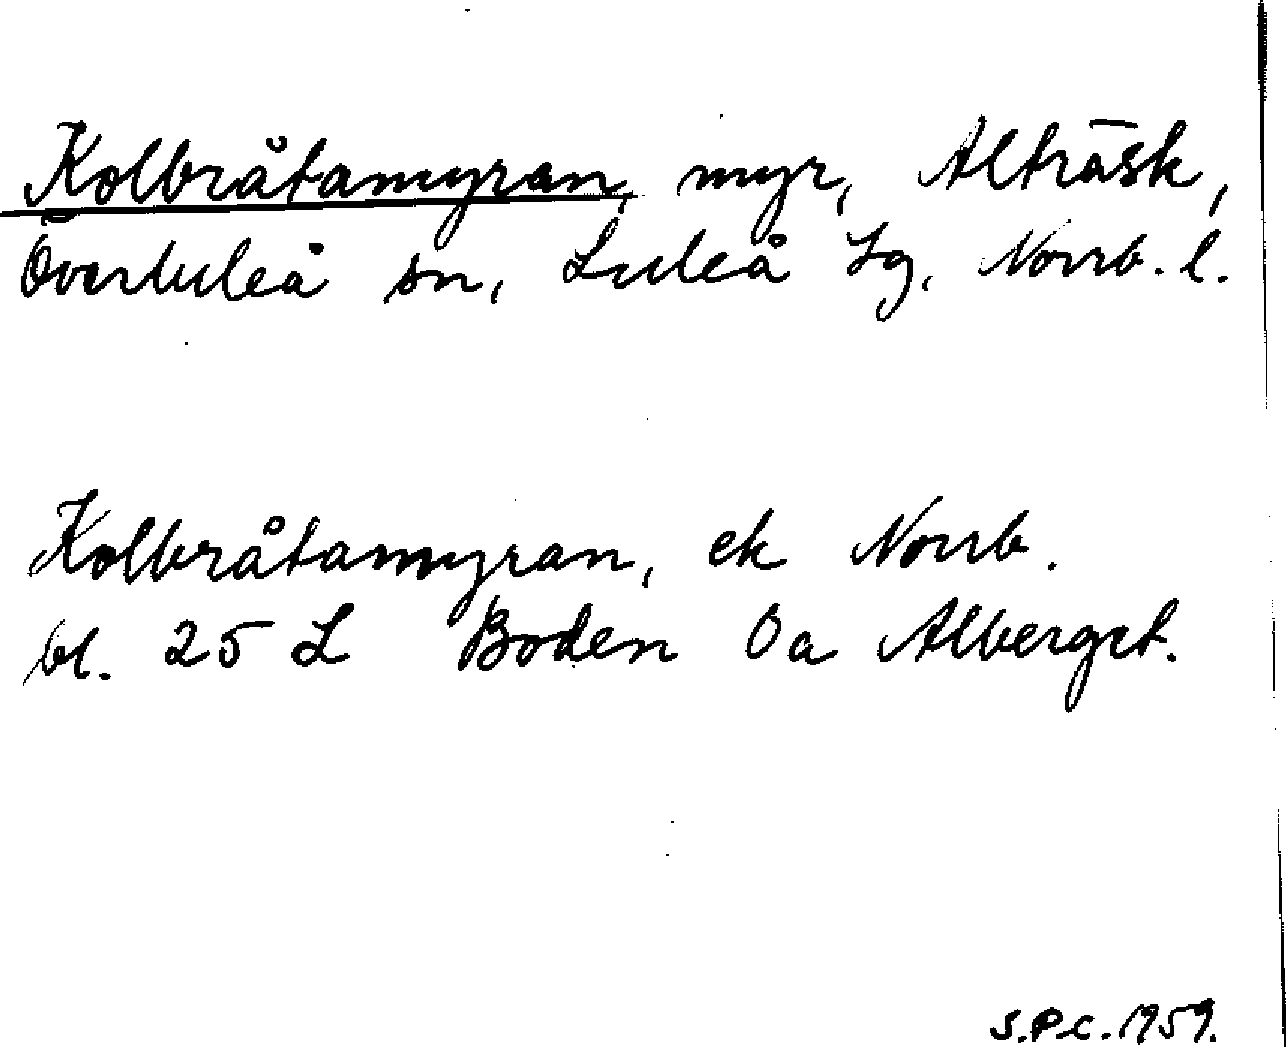 Kolbråtamyran, myr, Alträsk,
Överluleå sn, Luleå tg, Norrb. l.
Kolbråtamyran, ek Norrb.
bl. 25 L Boden Oa Alberget.
S.P.C. 1959.